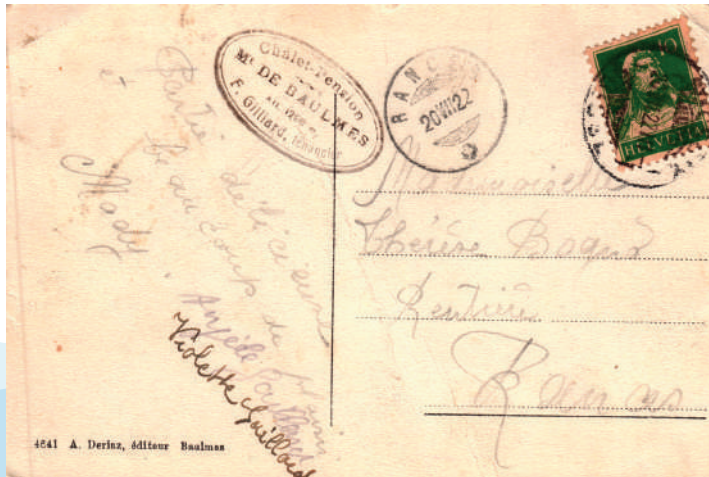 Châlet-Pension
Mt DE BAULMES
F. Gilliard, tenancier
RANCES
20 VII 22
10
HELVETIA
Partie délicieuse
beaucoup de
et
Mady
Angèle
Violette Gaillard
Mademoiselle
Thérèse
Rentière
Rances
4641 A. Deriaz, éditeur Baulmes